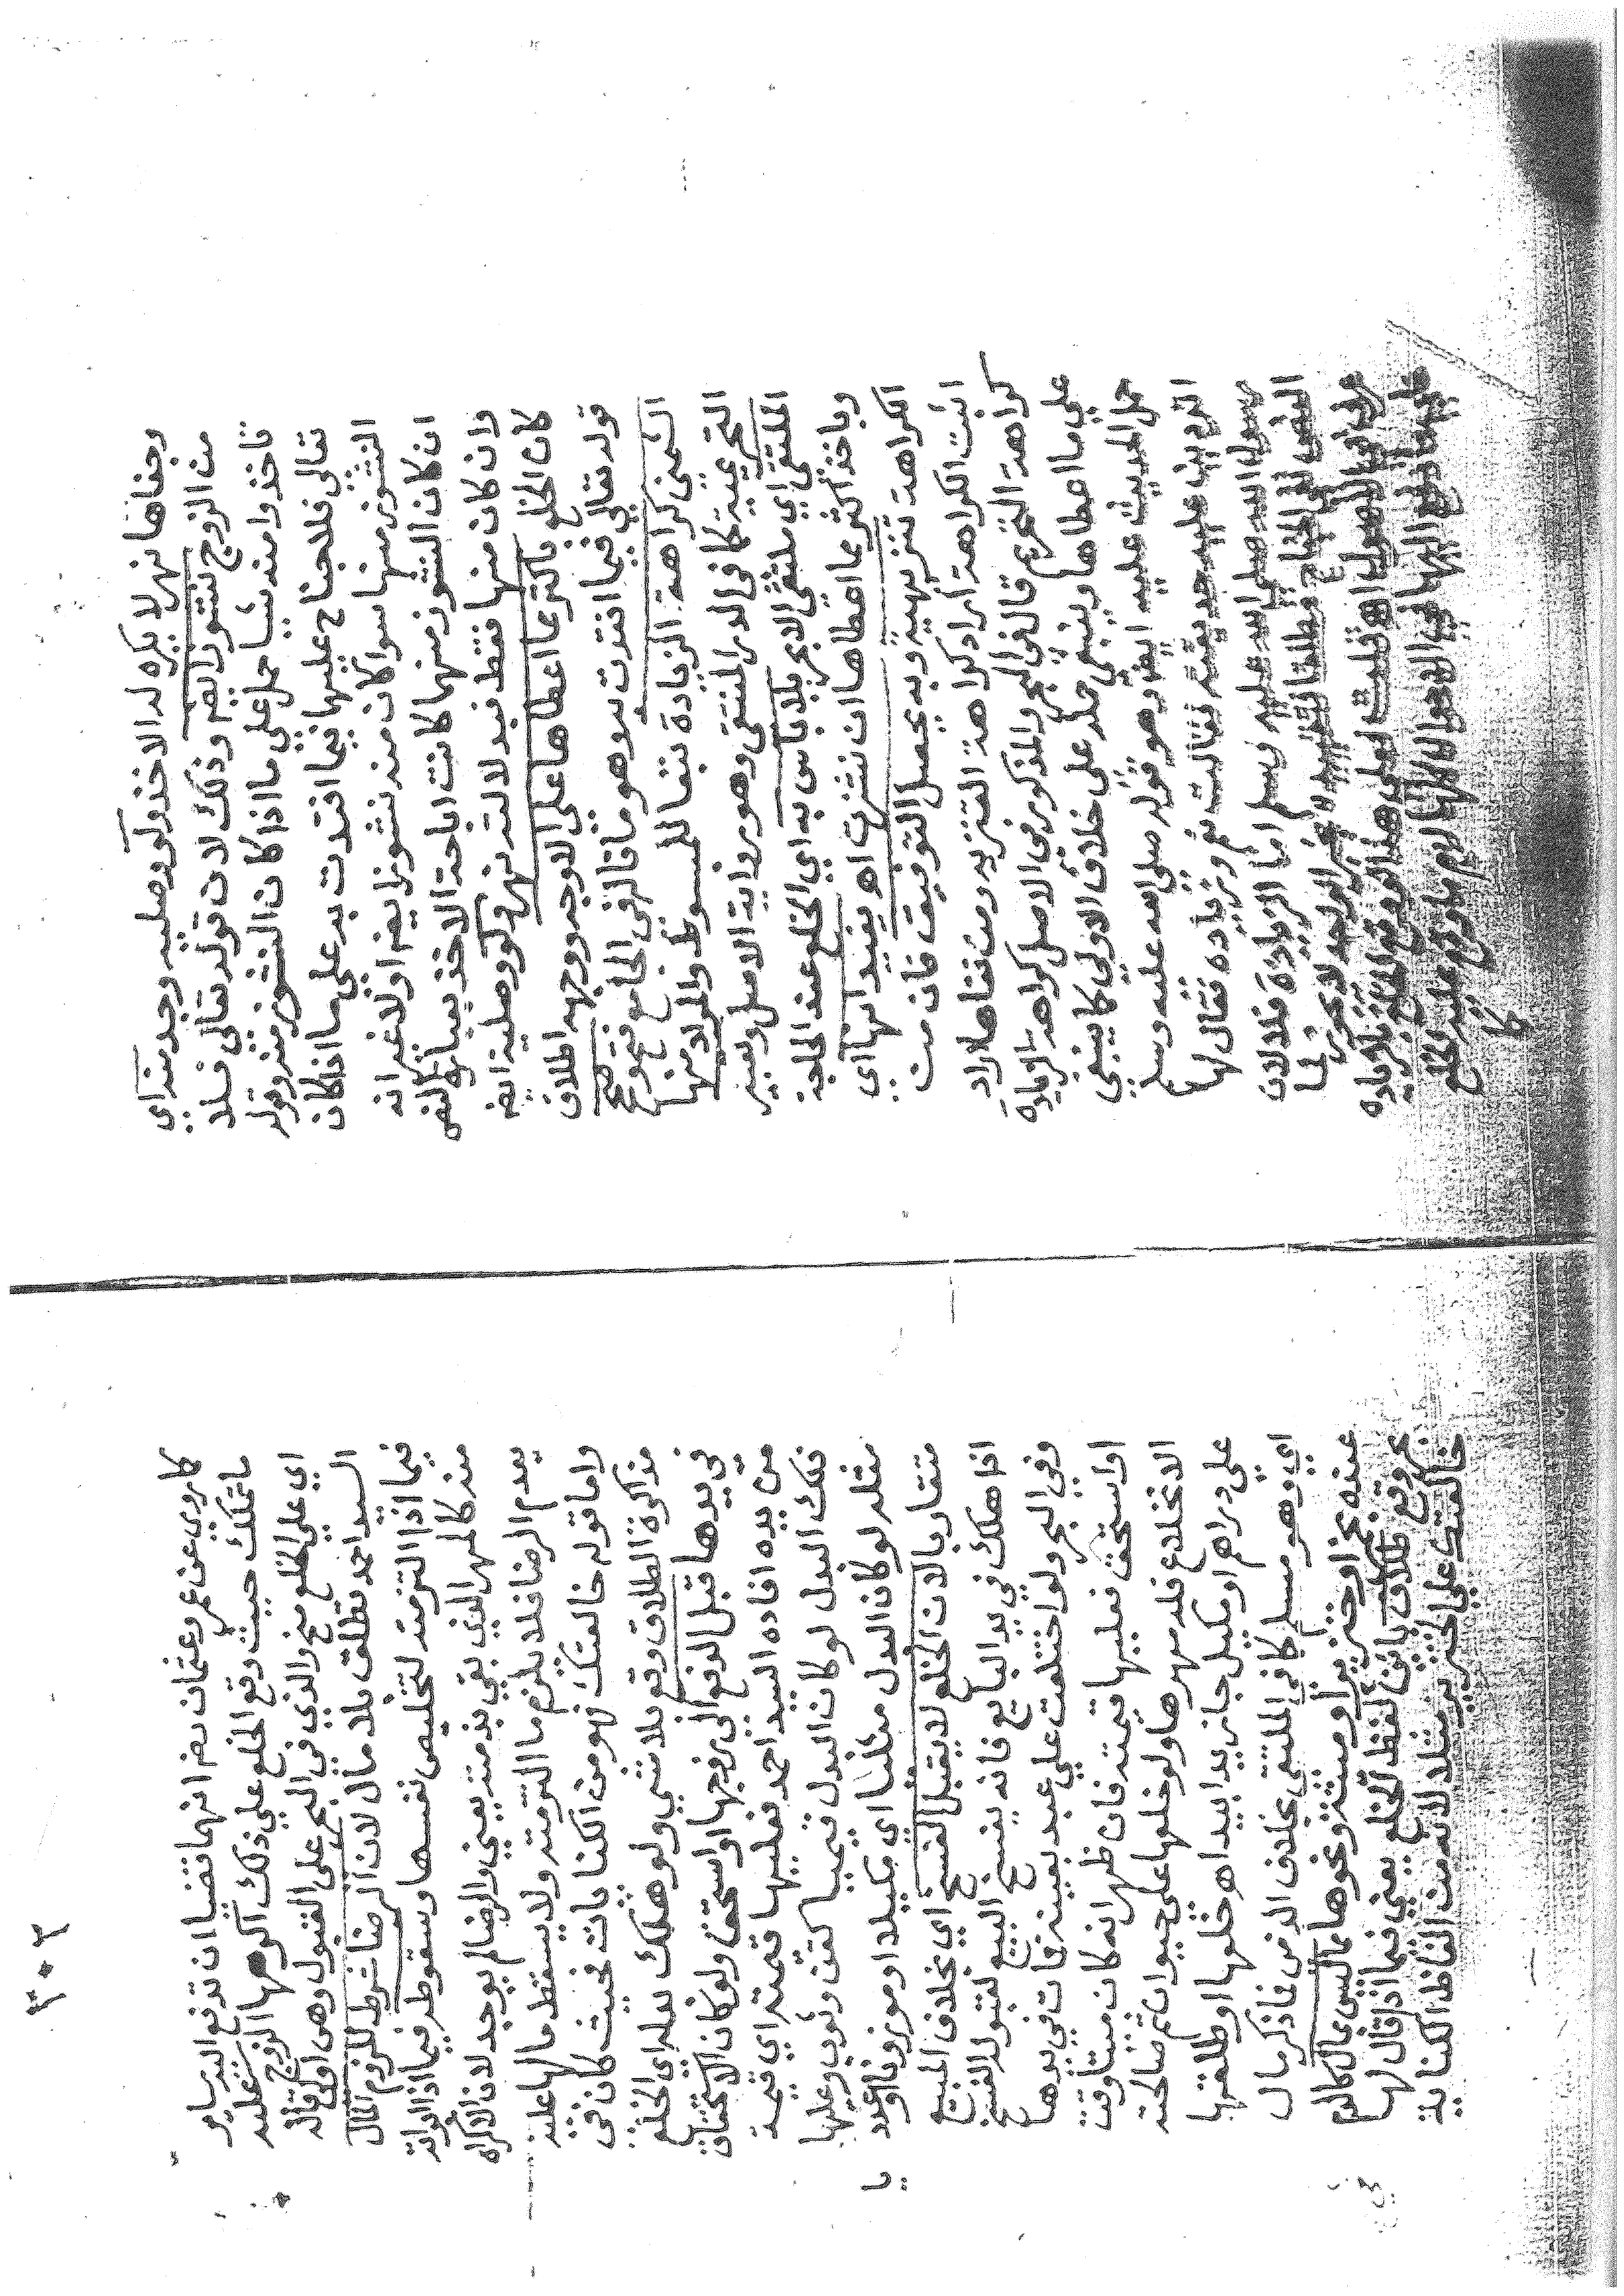 وجفاها نهر لا يكره له الاخذ ولو وصلية وجد منه اي
من الزوج نشوز ايضا وذلك لان قوله تعالى فلا
تاخذوا منه شيا حمل على ما اذا كان النشوز منه وقوله
تعالى فلا جناح عليهما فيما افتدت به على ما اذا كان
النشوز منها سوا كان منه نشوز ايضا او لا غير انه
ان كان النشوز منهما كانت اباحة الاخذ بعبارة النص
وان كان منها فقط فبدلالته نهر ولو وصلية
كان الخلع باكثر مما اعطاها على الاوجه ووجهه اطلاق
قوله تعالى فيما افتدت به وهو ما قال في الجامع فتح وصحح
الشمني كراهة الزيادة تبعا للمبسوط والمراد منها
التحريمية كما في الدر المنتقى وهو رواية الاصل وتعبير
الملتقى اي ملتقى الابحر بلا باس به اي الخلع عند الحاجة
وباخذ اكثر مما اعطاها ان نشزت اه يفيد انها اي
الكراهة تنزيهية وبه يحصل التوفيق فان من
اثبت الكراهة اراد كراهة التنزيه ومن نفاها اراد
كراهة التحريم قال في البحر والمذكور في الاصل كراهة الزيادة
على ما اعطاها وينبغي حمله على خلاف الاولى كما ينبغي
حمل الحديث عليه ايضا وهو قوله صلى الله عليه وسلم
اتردين عليه حديقته فقالت نعم وزيادة فقال لها
رسول الله صلى الله عليه وسلم اما الزيادة فلا لان
النص نفى الجناح مطلقا فتقييده بخبر الواحد لا يجوز لما
عرف في الاصول اه
كما
٣٠٢
كما روي عن عمر وعثمان رضي انهما قضيا ان تدفع اليه ساير
ما تملك حيث وقع الخلع على ذلك اكرهها الزوج عليه
اي على الخلع منح والذي في البحر على القبول وهي اولى قاله
السيد احمد تطلق بلا مال لان الرضا شرط للزوم المال
فيما اذا التزمته لتخليص نفسها وسقوطه فيما اذا ابراته
منه كالمهر الذي بقي بذمته يعني والرضا لم يوجد لان الاكراه
يعدم الرضا فلا يلزم ما التزمته ولا يسقط ما لها عليه
واما قوله خالعتك فهو من الكنايات فحيث كان في
مذاكرة الطلاق وقع بلا شي ولو هلك بدله اي الخلع
في يدها قبل الدفع الى زوجها او استحق ولو كان الاستحقاق
من يده افاده السيد احمد فعليها قيمته اي قيمة
ذلك البدل لو كان البدل قيميا كقن وثوب وعليها
مثله لو كان البدل مثليا اي مكيلا او موزونا او عدد
يا
متقاربا لان الخلع لا يقبل الفسخ اي بخلاف المبيع
اذا هلك في يد البايع فانه ينفسخ البيع لقبوله الفسخ
وفي البحر ولو اختلعت على عبد بعينه فمات في يدها
او استحق فعليها قيمته فان ظهر انه كان ميتا وقت
الاختلاع فله مهرها ولو خلعها على حيوان ثم صالحته
على دراهم او مكيل جاز يدا بيد اه خلعها او طلقها
اي وهو مسلم كما في الملتقى بخلاف الذمي فاذكر مال
عنده بخمر او خنزير او ميتة ونحوها مما ليس بمال كالدم
وقع طلاق باين لفظ الخلع يعني فيما اذا قال لها
خالعتك على الخنزير مثلا لانه من الفاظ الكناية